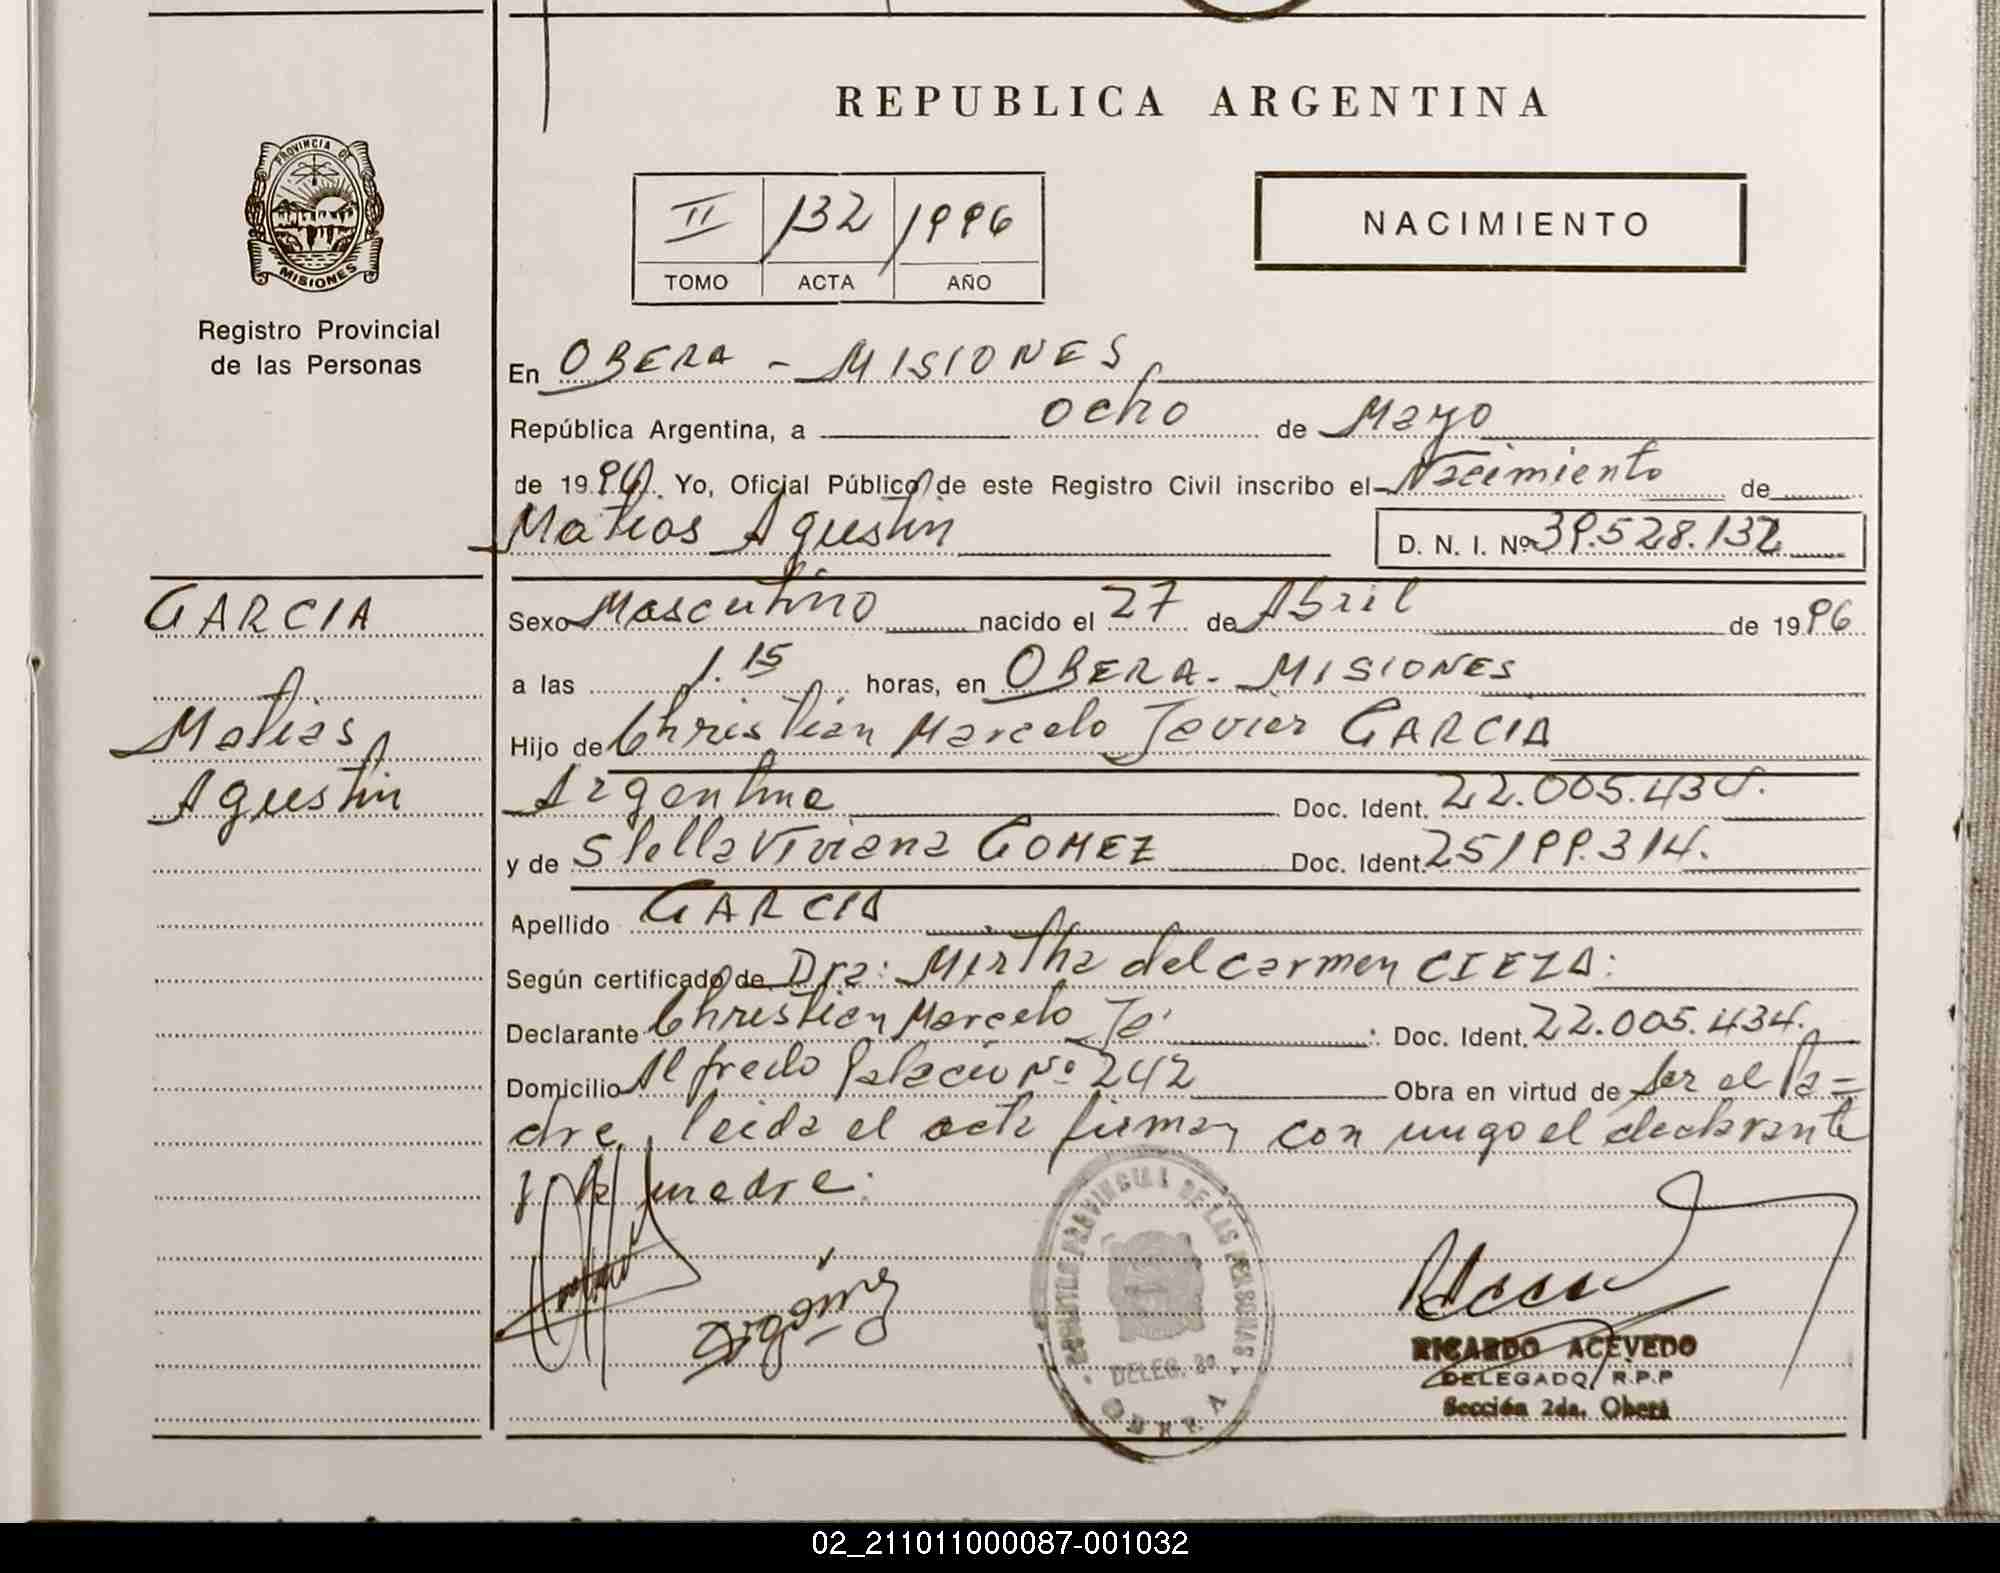 REPUBLICA ARGENTINA
PROVINCIA DE
MISIONES
Registro Provincial
de las Personas
II 132 1996
TOMO ACTA AÑO
NACIMIENTO
En OBERA - MISIONES
República Argentina, a ocho de Mayo
de 1996. Yo, Oficial Público de este Registro Civil inscribo el Nacimiento de
Matias Agustin D. N. I. Nº 39.528.132
GARCIA
Matias
Agustin
Sexo Masculino nacido el 27 de Abril de 1996
a las 1.15 horas, en OBERA - MISIONES
Hijo de Christian Marcelo Javier GARCIA
Argentina Doc. Ident. 22.005.434.
y de Stella Viviana GOMEZ Doc. Ident. 25199.314.
Apellido GARCIA
Según certificado de Dra: Mirtha del Carmen CIEZA:
Declarante Christian Marcelo Ja: Doc. Ident. 22.005.434.
Domicilio Alfredo Palacio Nº 242 Obra en virtud de ser el Pa=
dre, leida el acta firman con migo el declarante
y la madre:
REGISTRO PROVINCIAL DE LAS PERSONAS
DELEG. 2a
OBERA
RICARDO ACEVEDO
DELEGADO R.P.P
Sección 2da. Oberá
02_211011000087-001032